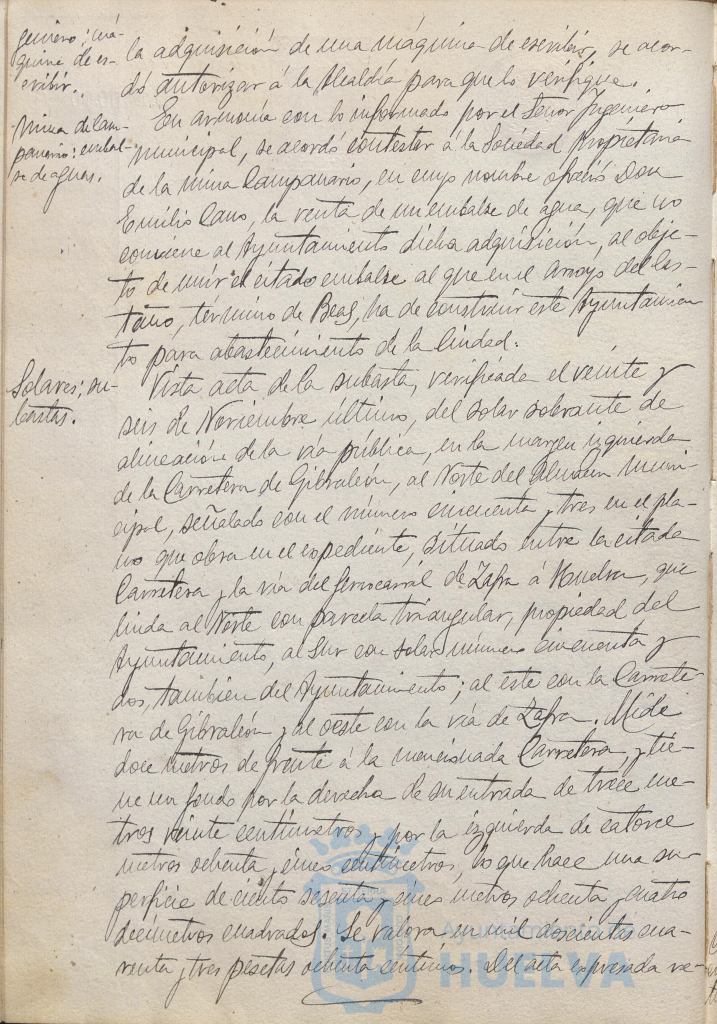 geniero; má-
quina de es-
cribir.
la adquisición de una máquina de escribir, se acor-
dó autorizar á la Alcaldía para que lo verifique.
Mina de Cam-
panario; embal-
se de aguas.
En armonía con lo informado por el Señor Ingeniero
municipal, se acordó contestar á la Sociedad Propietaria
de la mina Campanario, en cuyo nombre ofreció Don
Emilio Cano, la venta de un embalse de agua, que no
conviene al Ayuntamiento dicha adquisición, al obje-
to de unir el citado embalse al que en el arroyo del Cas-
taño, término de Beas, ha de construir este Ayuntamien
to para abastecimiento de la Ciudad.
Solares; su-
bastas.
Vista acta de la subasta, verificada el veinte y
seis de Noviembre último, del solar sobrante de
alineación de la vía pública, en la margen izquierda
de la Carretera de Gibraleón, al Norte del Almacen Muni-
cipal, señalado con el número cincuenta y tres en el pla-
no que obra en el expediente, situado entre la citada
Carretera y la vía del ferrocarril de Zafra á Huelva, que
linda al Norte con parcela triangular, propiedad del
Ayuntamiento, al Sur con solar número cincuenta y
dos, también del Ayuntamiento; al este con la Carrete-
ra de Gibraleón y al oeste con la vía de Zafra. Mide
doce metros de frente á la mencionada Carretera, y tie-
ne un fondo por la derecha de su entrada de trece me-
tros veinte centímetros y por la izquierda de catorce
metros ochenta y cinco centímetros, lo que hace una su-
perficie de ciento sesenta y cinco metros ochenta y cuatro
decímetros cuadrados. Se valora en mil doscientas cua-
renta y tres pesetas ochenta céntimos. Del acta expresada re-
Ayuntamiento de
HUELVA